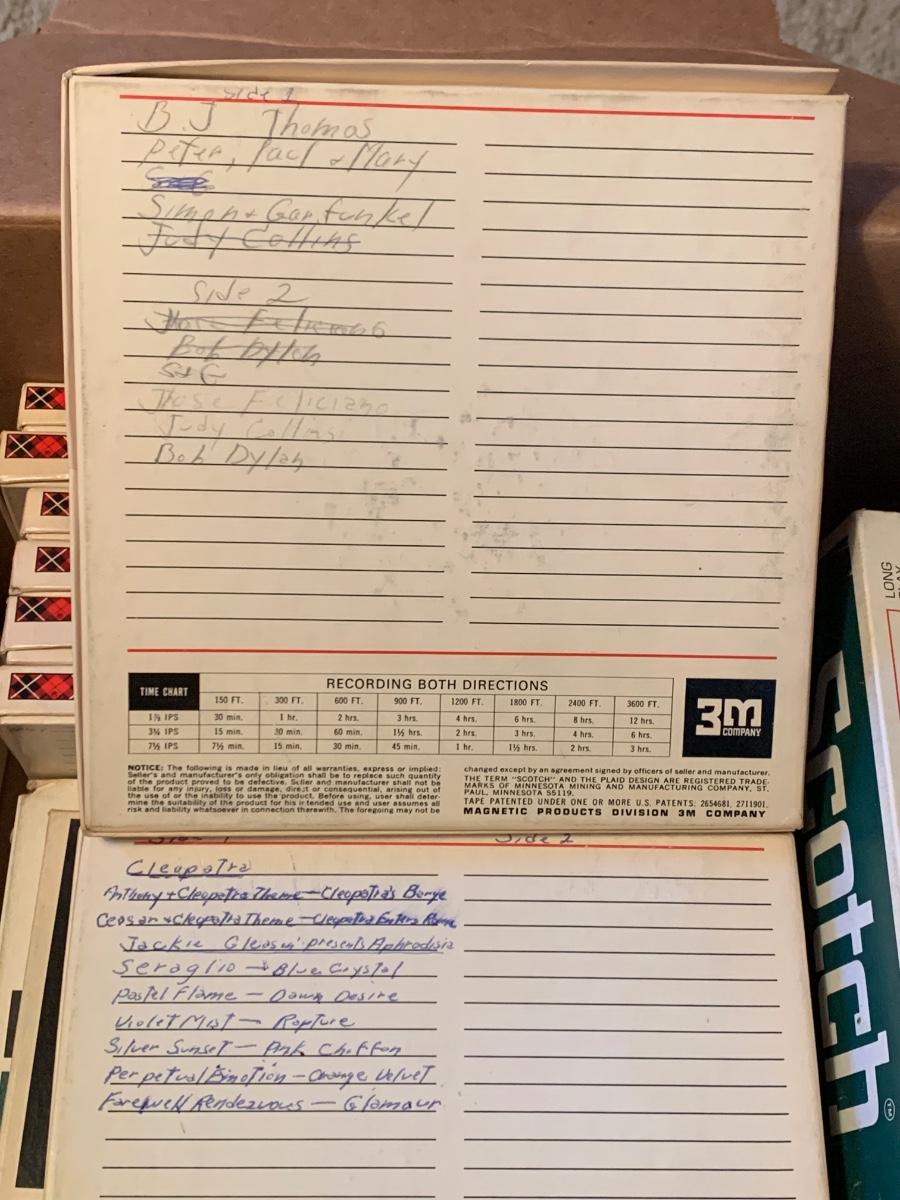 Side 1
B.J Thomas
Peter, Paul & Mary
Simon & Garfunkel
Judy Collins
Side 2
Jose Feliciano
Bob Dylan
S & G
Jose Feliciano
Judy Collins
Bob Dylan
RECORDING BOTH DIRECTIONS
TIME CHART 150 FT. 300 FT. 600 FT. 900 FT. 1200 FT. 1800 FT. 2400 FT. 3600 FT.
1⅞ IPS 30 min. 1 hr. 2 hrs. 3 hrs. 4 hrs. 6 hrs. 8 hrs. 12 hrs.
3¾ IPS 15 min. 30 min. 60 min. 1½ hrs. 2 hrs. 3 hrs. 4 hrs. 6 hrs.
7½ IPS 7½ min. 15 min. 30 min. 45 min. 1 hr. 1½ hrs. 2 hrs. 3 hrs.
3M
COMPANY
NOTICE: The following is made in lieu of all warranties, express or implied:
Seller's and manufacturer's only obligation shall be to replace such quantity
of the product proved to be defective. Seller and manufacturer shall not be
liable for any injury, loss or damage, direct or consequential, arising out of
the use of or the inability to use the product. Before using, user shall deter-
mine the suitability of the product for his intended use and user assumes all
risk and liability whatsoever in connection therewith. The foregoing may not be
changed except by an agreement signed by officers of seller and manufacturer.
THE TERM "SCOTCH" AND THE PLAID DESIGN ARE REGISTERED TRADE-
MARKS OF MINNESOTA MINING AND MANUFACTURING COMPANY, ST.
PAUL, MINNESOTA 55119.
TAPE PATENTED UNDER ONE OR MORE U.S. PATENTS: 2654681, 2711901.
MAGNETIC PRODUCTS DIVISION 3M COMPANY
Side 1 Side 2
Cleopatra
Anthony & Cleopatra Theme — Cleopatra's Barge
Ceasar & Cleopatra Theme — Cleopatra Enters Rome
Jackie Gleason presents Aphrodisia
Seraglio — Blue Crystal
Pastel Flame — Dawn Desire
Violet Mist — Rapture
Silver Sunset — Pink Chiffon
Perpetual Emotion — Orange Velvet
Farewell Rendezvous — Glamour
LONG
PLAY
Scotch
TM